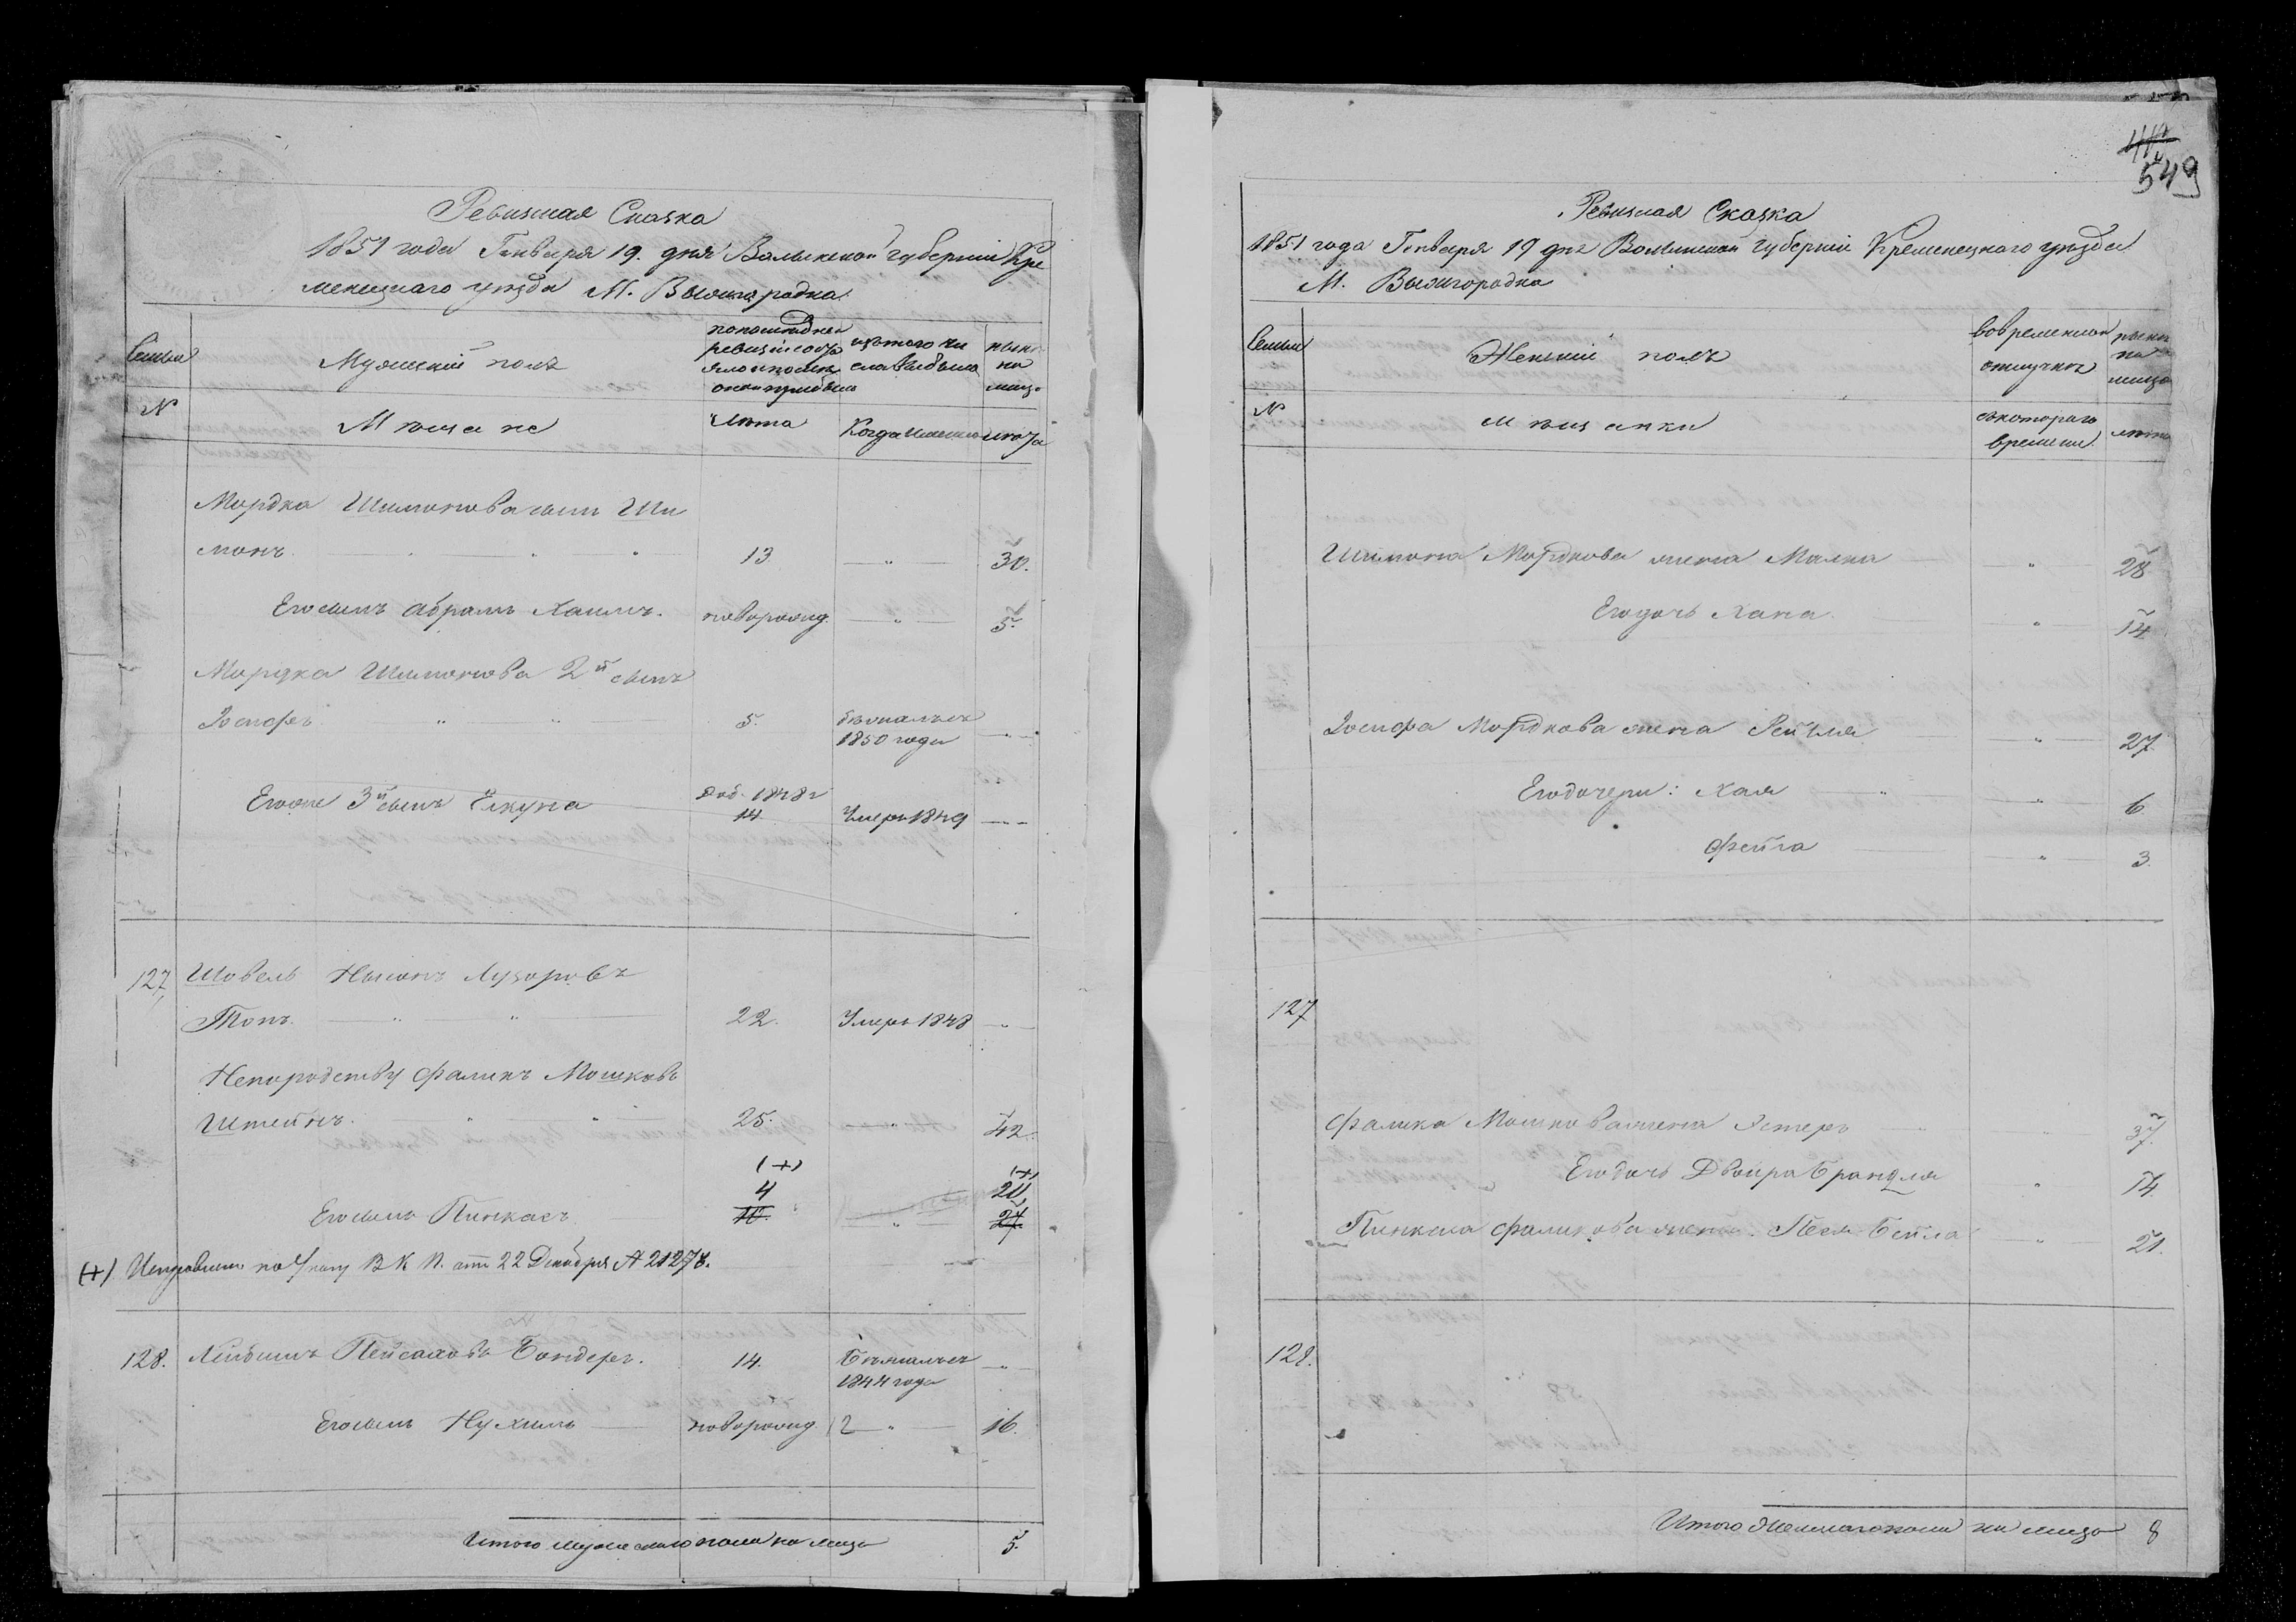 Ревизская Сказка
1851 года Генваря 19. дня Волынской губернии Кре
менецкаго уезда М. Вышгородка
Семьи
Мужеский полъ
по последней ревизии состояло и после оной прибыло
изъ того числа выбыло
ныне на лицо
№
Мещане
Лета
Когда именно
лета
Мордка Шимонова сынъ Ши
монъ 13 " 30.
Его сынъ Абрамъ Хаимъ. новорожд. " 5.
Мордка Шимонова 2й сынъ
Иосифъ 5. бежалъ съ
1850 года "
Его же 3й сынъ Елкуна Доб. 1848 г
14 Умеръ 1849
127, Шовель Нысонъ Лузоровъ
Топъ. 22. Умеръ 1848 "
Непородству Фаликъ Мошковъ
Штейнъ. 25. " 42.
(+) (+)
4 20
Его сынъ Пинкасъ 10. " 27
(+) Исправлено по Указу В К П. отъ 22 Декабря № 21278.
128. Лейбишъ Пейсаховъ Бондеръ. 14. Бежалъ съ
1844 года "
Его сынъ Нухимъ новорожд. " 16.
Итого мужескаго пола на лицо 5.
549
Ревизская Сказка
1851 года Генваря 19 дня Волынской губернии Кременецкаго уезда
М. Вышгородка
Семьи
Женский полъ
во временной отлучке
ныне на лицо
№
Мещанки
съ котораго времени
лета
Шимона Мордкова жена Малка " 28
Его дочь Хана " 14
Иосифа Мордкова жена Рейзля " 27
Его дочери: Хая " 6
Фейга " 3.
127
Фалика Мошкова жена Эстеръ " 37.
Его дочь Двойра Брандля " 14.
Пинкаса Фаликова жена Песя Бейла " 21.
128.
Итого Женскаго пола на лицо 8